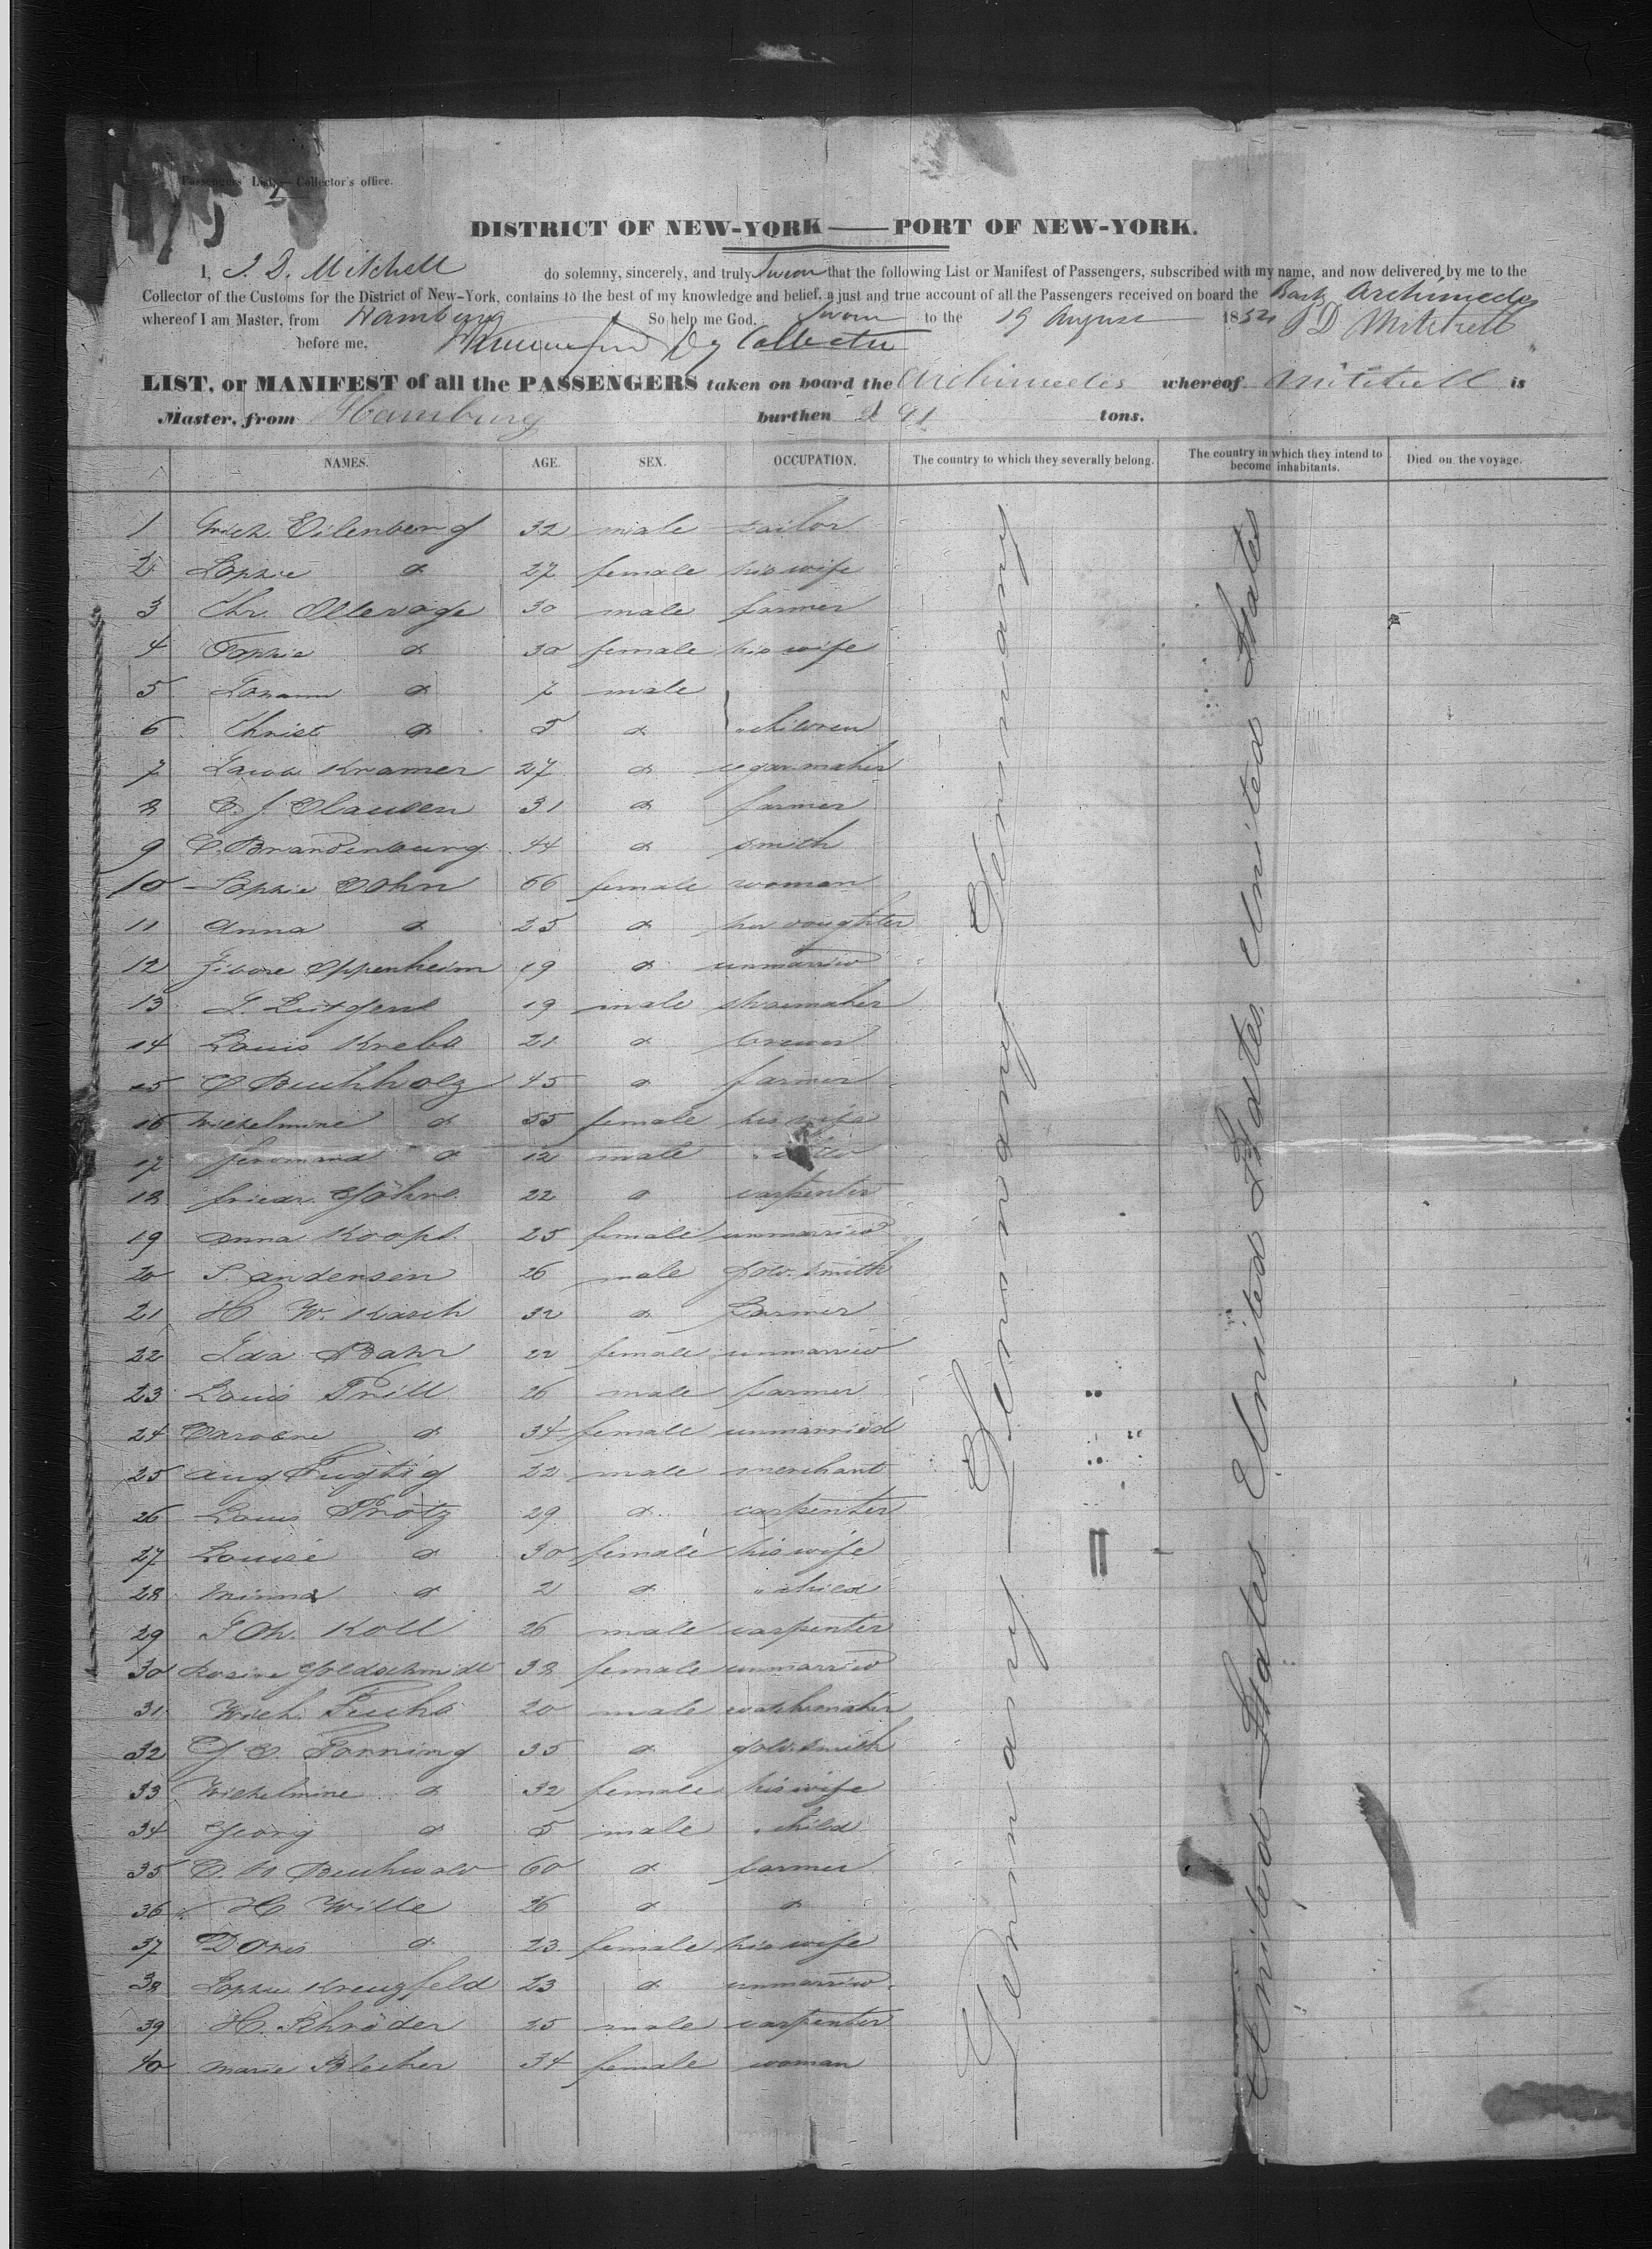 Passengers' List.—Collector's office.
DISTRICT OF NEW-YORK — PORT OF NEW-YORK.
I, J. D. Mitchell do solemny, sincerely, and truly Swear that the following List or Manifest of Passengers, subscribed with my name, and now delivered by me to the
Collector of the Customs for the District of New-York, contains to the best of my knowledge and belief, a just and true account of all the Passengers received on board the Bark Archimedes
whereof I am Master, from Hamburg So help me God. Sworn to the 19 August 185 J D Mitchell
before me, Dy Collector
LIST, or MANIFEST of all the PASSENGERS taken on board the Archimedes whereof Mitchell is
Master, from Hamburg burthen 291 tons.
NAMES. AGE. SEX. OCCUPATION. The country to which they severally belong. The country in which they intend to become inhabitants. Died on the voyage.
1 Wilh. Eilenberg 32 male tailor
2 Sophie d 27 female his wife
3 Chr. Ellerage 30 male farmer
4 Sophie d 30 female his wife
5 Johann d 7 male
6 Christ d 5 d children
7 Jacob Kramer 27 d segar maker
8 C. J. Clausen 31 d farmer
9 C. Brandenburg 44 d smith
10 Sophie Cohn 66 female woman
11 Anna d 25 d her doughter
12 Oppenheim 19 d unmarried
13 J. Lütgens 19 male shoemaker
14 Louis Krebs 21 d brewer
15 C Buchholz 45 d farmer
16 Wilhelmine d 55 female his wife
17 d 12 male
18 friedr. Göhre 22 d carpenter
19 Anna Koops 25 female unmarried
20 S. Andersen 26 male goldsmith
21 H W. Kasch 32 d Farmer
22 Ida Bahr 22 female unmarried
23 Louis Prill 26 male farmer
24 Caroline d 34 female unmarried
25 Aug 22 male merchant
26 Louis Protz 29 d carpenter
27 Louise d 30 female his wife
28 Minna d 2 d " child
29 Joh. Koll 26 male carpenter
30 Rosine Goldschmidt 38 female unmarried
31 Wilh. Fuchs 20 male watchmaker
32 G C. Fonning 35 d goldsmith
33 Wilhelmine d 32 female his wife
34 Georg d 5 male " child
35 C. H Buchwald 60 d farmer
36 H Wille 26 d d
37 Doris d 23 female his wife
38 Sophie Kreuzfeld 23 d unmarried
39 H. Schröder 25 male carpenter
40 Marie Blecher 34 female woman
Germany Germany Germany Germany
United States United States United States United States